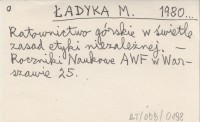 ŁADYKA M. 1980...
Ratownictwo górskie w świetle
zasad etyki niezależnej. –
Roczniki Naukowe AWF w War-
szawie 25.